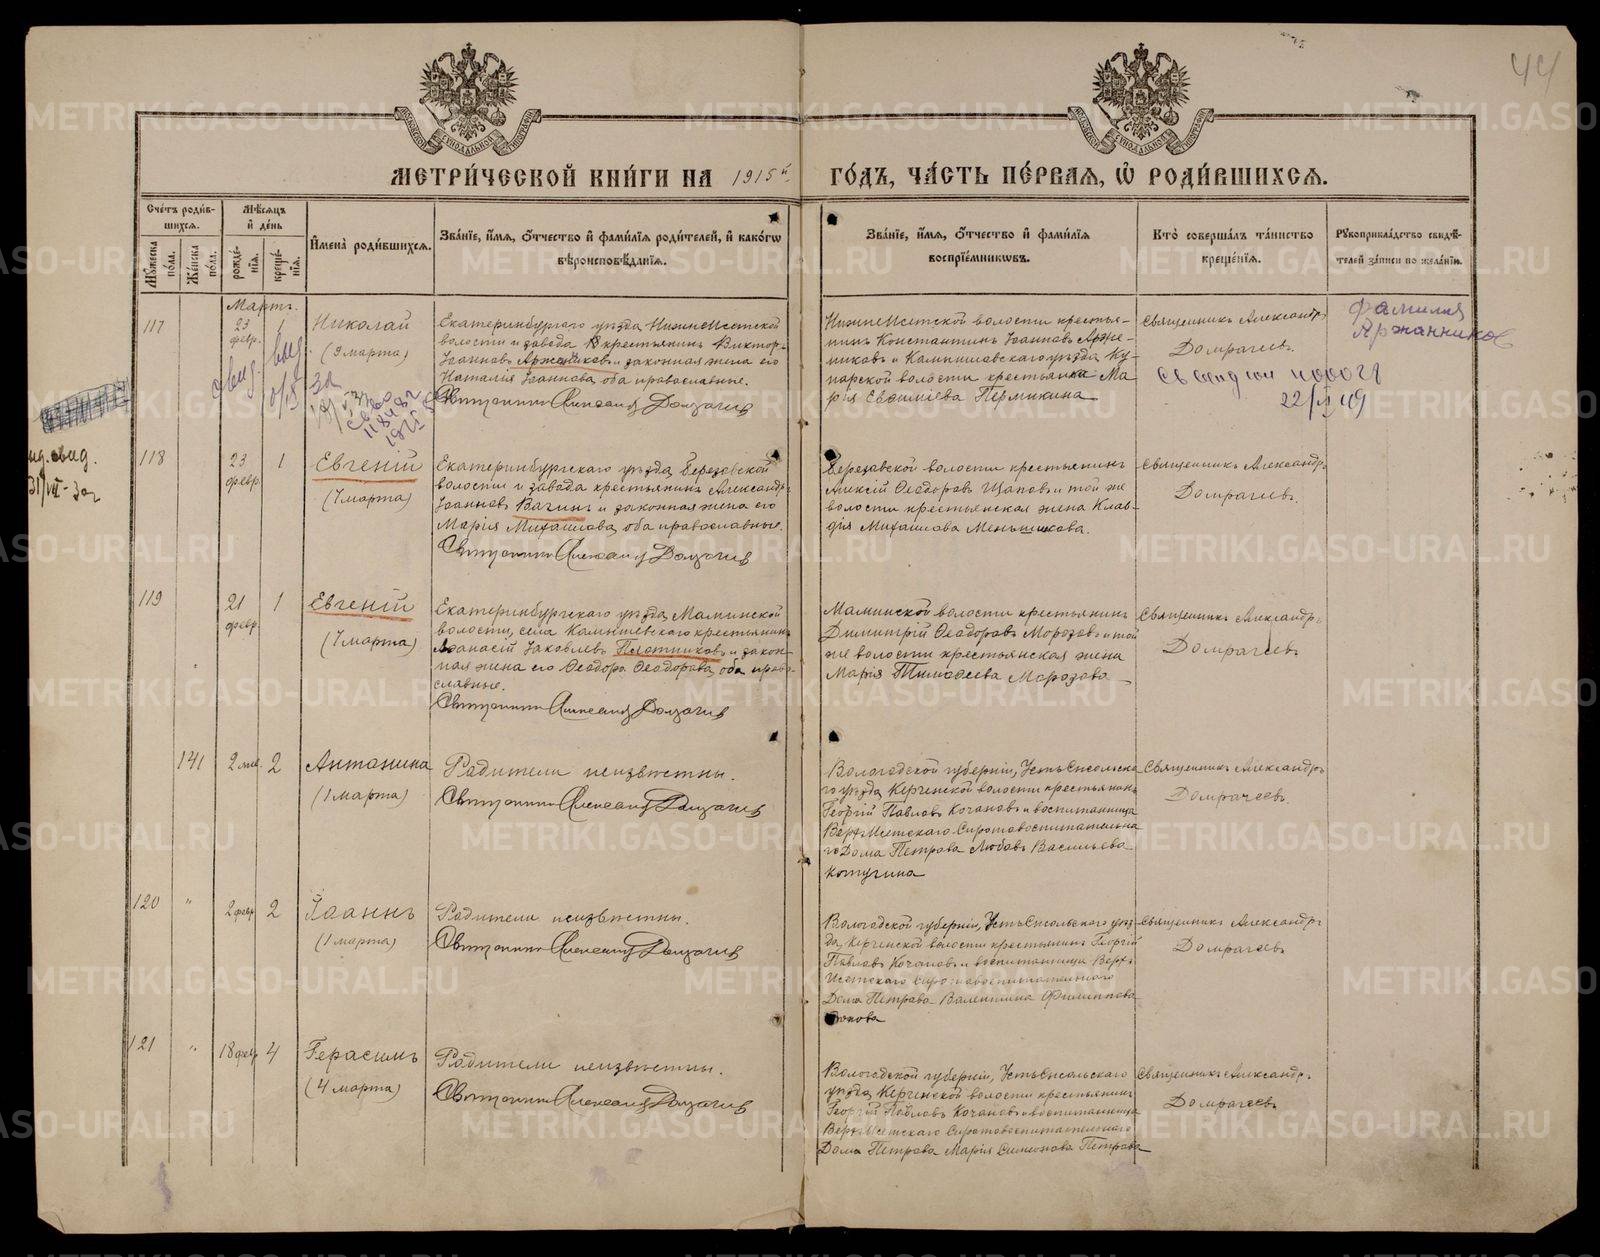 44
МОСКОВСКОЙ СѴНОДАЛЬНОЙ ТИПОГРАФІИ
МОСКОВСКОЙ СѴНОДАЛЬНОЙ ТИПОГРАФІИ
МЕТРИ́ЧЕСКОЙ КНИ́ГИ НА 1915й ГО́ДЪ, ЧА́СТЬ ПЕ́РВАЯ, Ѡ҆ РОДИ́ВШИХСЯ.
Сче́тъ роди́в-
шихся.
Му́жеска по́ла.
Же́нска по́ла.
Мѣ́сяцъ
и҆ де́нь
рожде́-
нїя.
креще́-
нїя.
И҆мена̀ роди́вшихся.
Зва́нїе, и҆́мя, ѻ҆́тчество и҆ фами́лїя роди́телей, и҆ како́гѡ
вѣроисповѣ́данїя.
Зва́нїе, и҆́мя, ѻ҆́тчество и҆ фами́лїя
воспрїе́мникѡвъ.
Кто̀ соверша́лъ та́инство
креще́нїя.
Рꙋкоприкла́дство свидѣ́-
телей за́писи по жела́нїю.
Мартъ.
117
23
февр.
1
Николай
(9 марта)
Екатеринбургскаго уѣзда НижнеИсетской
волости и завода крестьянинъ Викторъ
Іоанновъ Аржанниковъ и законная жена его
Наталія Іоаннова оба православные.
Священникъ Александръ Домрачевъ
НижнеИсетской волости крестья-
нинъ Константинъ Іоанновъ Аржан-
никовъ и Камышловскаго уѣзда Ку-
нарской волости крестьянка Ма-
рія Евѳиміева Пермикина
Священникъ Александръ
Домрачевъ.
фамилия
Аржанников
22/XI 49
118
23
февр.
1
Евгеній
(7 марта)
Екатеринбургскаго уѣзда, Березовской
волости и завода крестьянинъ Александръ
Іоанновъ Вагинъ и законная жена его
Марія Михаилова, оба православные.
Священникъ Александръ Домрачевъ
Березовской волости крестьянинъ
Алексій Ѳеодоровъ Щаповъ и той же
волости крестьянская жена Клав-
дія Михаилова Меньшикова.
Священникъ Александръ
Домрачевъ.
119
21
февр.
1
Евгеній
(7 марта)
Екатеринбургскаго уѣзда, Маминской
волости, села Камышевскаго крестьянинъ
Аѳанасій Іаковлевъ Плотниковъ и закон-
ная жена его Ѳеодора Ѳеодорова, оба право-
славные.
Священникъ Александръ Домрачевъ
Маминской волости крестьянинъ
Димитрій Ѳеодоровъ Морозовъ и той
же волости крестьянская жена
Марія Тимоѳеева Морозова
Священникъ Александръ
Домрачевъ
141
2
2
Антонина
(1 марта)
Родители неизвѣстны.
Священникъ Александръ Домрачевъ
Вологодской губерніи, УстьСысольска-
го уѣзда, Керченской волости крестьянинъ
Георгій Павловъ Кочановъ и воспитанница
ВерхИсетскаго Сиротовоспитательна-
го Дома Петрова Любовь Васильева
Котугина
Священникъ Александръ
Домрачевъ.
120
"
2 февр.
2
Іоаннъ
(1 марта)
Родители неизвѣстны.
Священникъ Александръ Домрачевъ
Вологодской губерніи, УстьСысольскаго уѣз-
да, Керченской волости крестьянинъ Георгій
Павловъ Кочановъ и воспитанница Верхъ-
Исетскаго Сиротовоспитательнаго
Дома Петрова Валентина Филиппова
Священникъ Александръ
Домрачевъ
121
"
18 февр.
4
Герасимъ
(4 марта)
Родители неизвѣстны.
Священникъ Александръ Домрачевъ
Вологодской губерніи, УстьСысольскаго
уѣзда, Керченской волости крестьянинъ
Георгій Павловъ Кочановъ и воспитанница
ВерхИсетскаго Сиротовоспитательнаго
Дома Петрова Марія Симеонова Петрова
Священникъ Александръ
Домрачевъ
METRIKI.GASO-URAL.RU